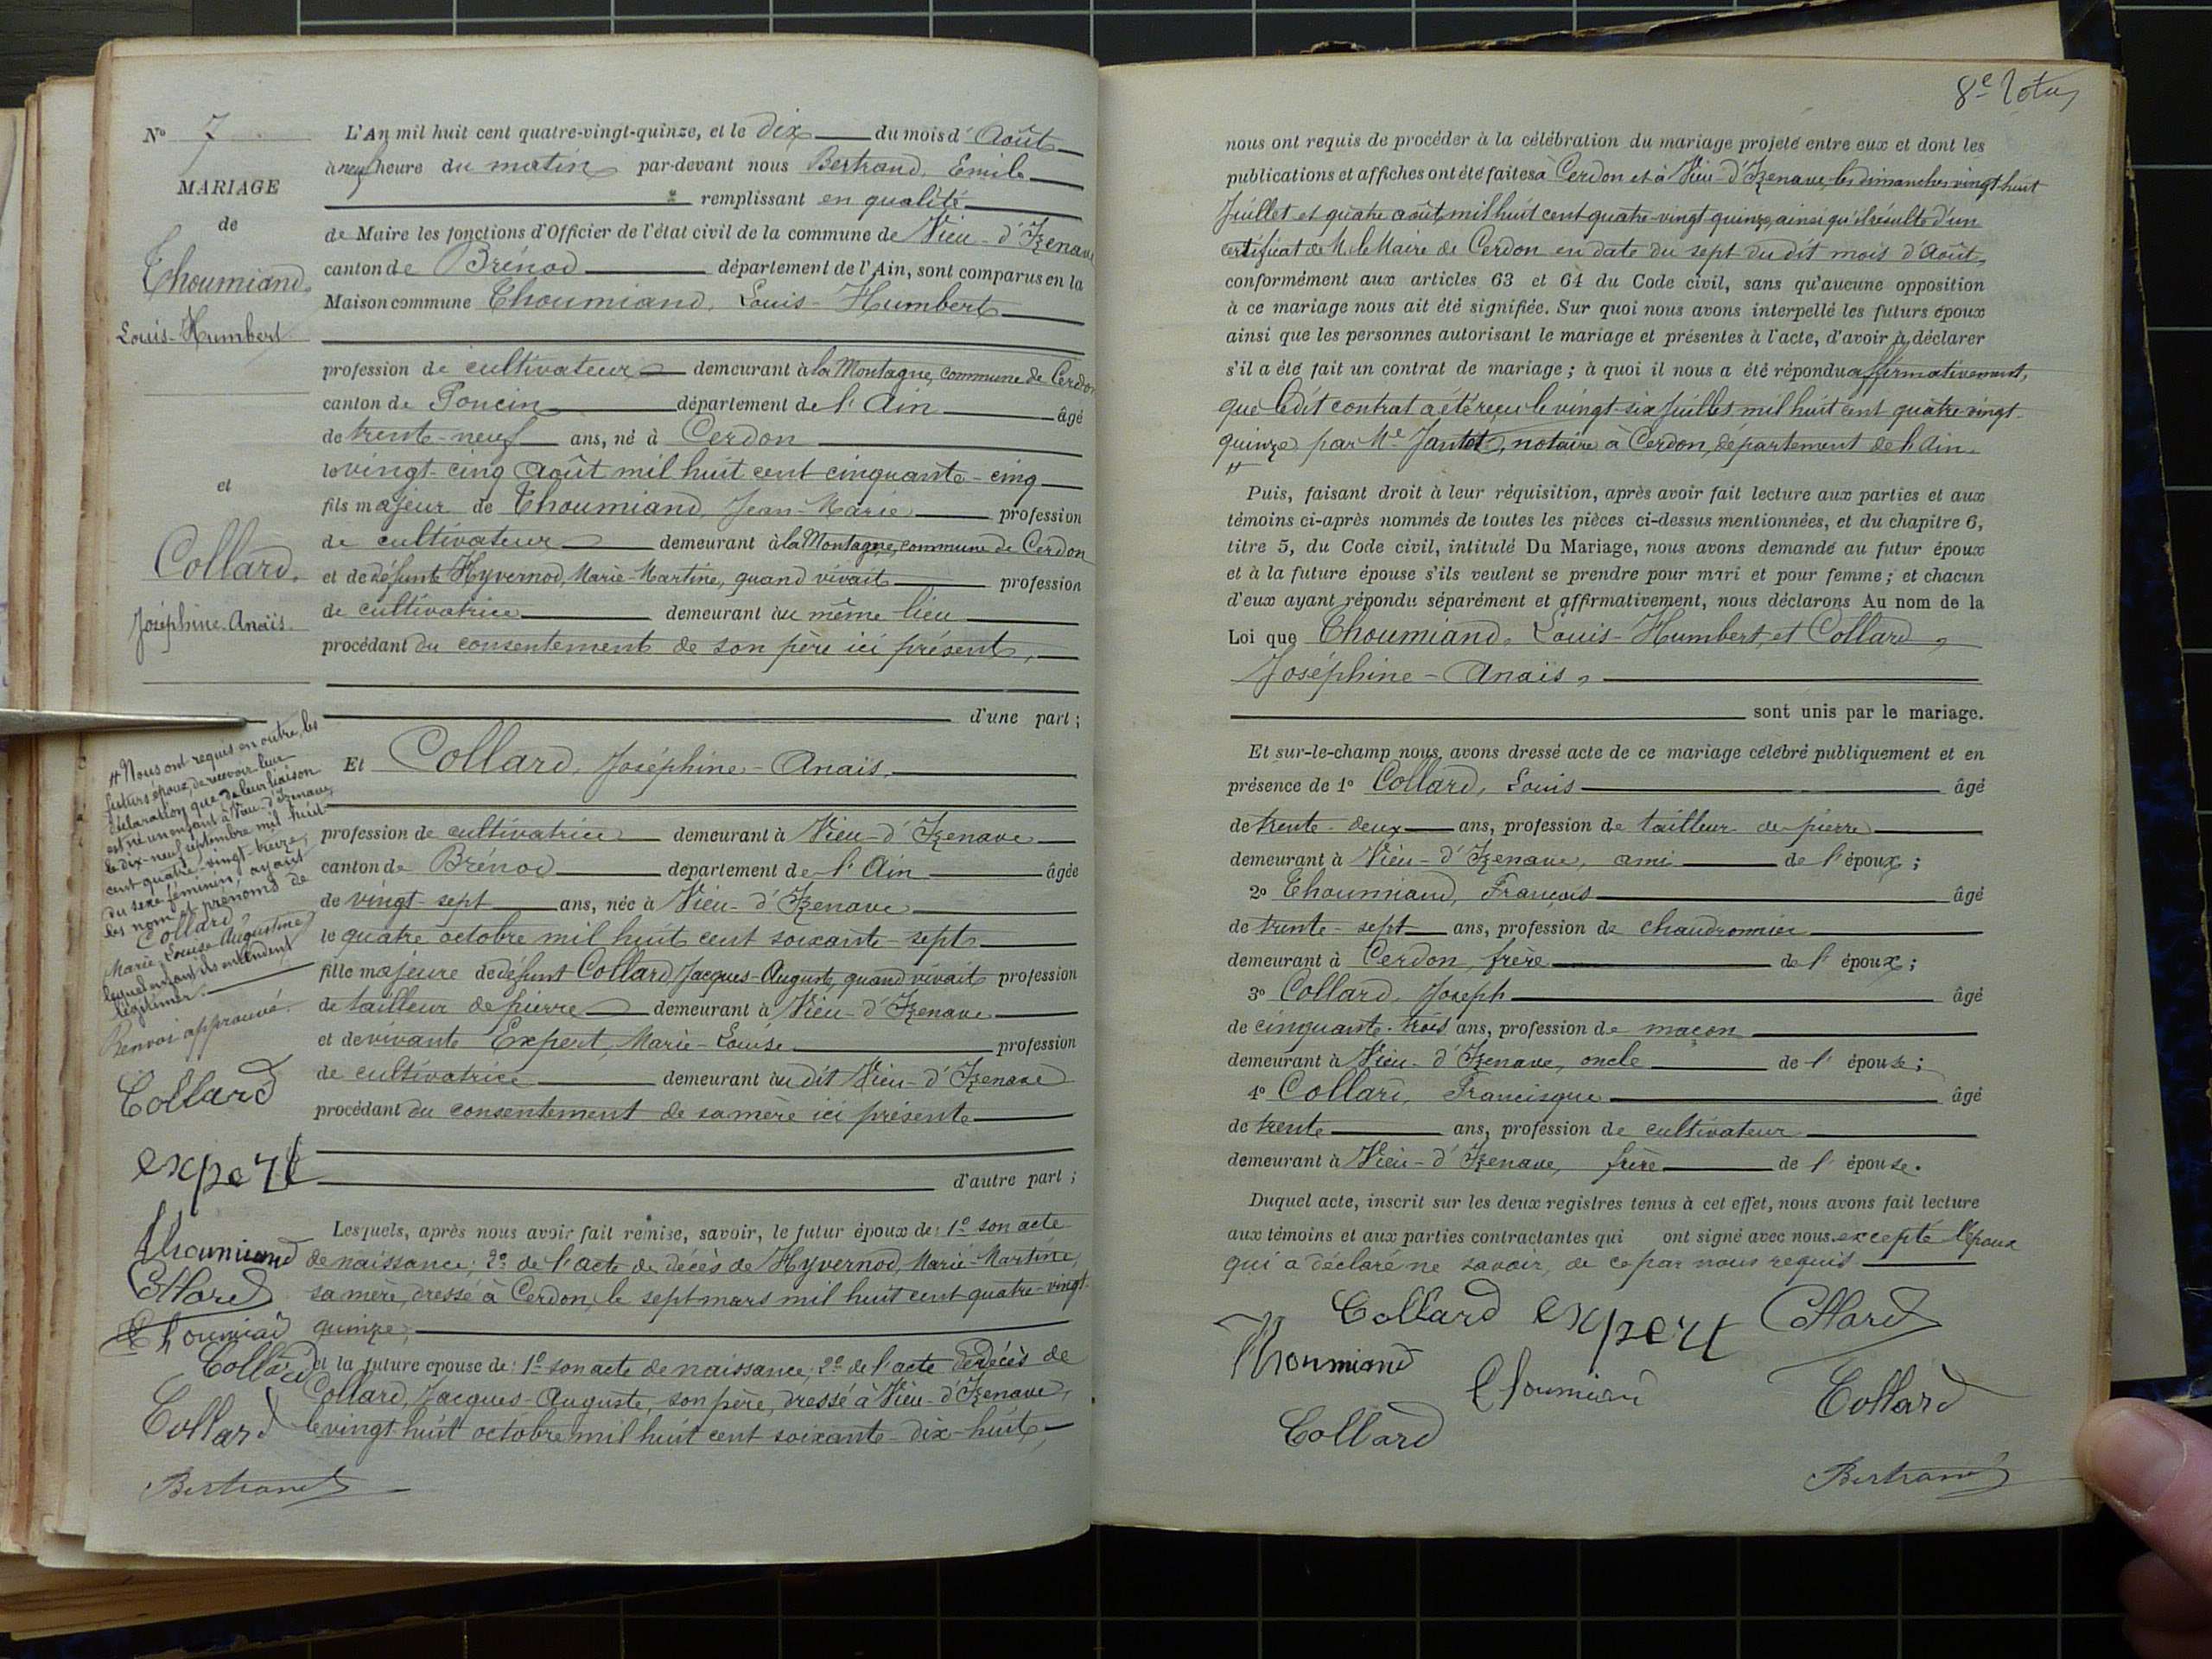 N° 7
MARIAGE
de
Thoumiand,
Louis-Humbert
et
Collard,
Joséphine-Anaïs.
# Nous ont requis en outre, les
futurs époux, de recevoir leur
déclaration que de leur liaison
est né un enfant à Vieu-d'Izenave,
le dix-neuf septembre mil huit
cent quatre-vingt-treize,
du sexe féminin, ayant
les nom et prénoms de
Collard,
Marie-Louise-Augustine
lequel enfant ils entendent
légitimer.
Renvoi approuvé.
Collard
expert
Thoumiand
Collard
Thoumiad
Collard
Collard
Bertrand
L'An mil huit cent quatre-vingt-quinze, et le dix du mois d'Août
à neuf heure du matin par-devant nous Bertrand, Emile
remplissant en qualité
de Maire les fonctions d'Officier de l'état civil de la commune de Vieu-d'Izenave
canton de Brénod département de l'Ain, sont comparus en la
Maison commune Thoumiand, Louis-Humbert
profession de cultivateur demeurant à la Montagne, commune de Cerdon
canton de Poncin département de l'Ain âgé
de trente-neuf ans, né à Cerdon
le vingt-cinq Août mil huit cent cinquante-cinq
fils majeur de Thoumiand, Jean-Marie profession
de cultivateur demeurant à la Montagne, commune de Cerdon
et de défunte Hyvernod, Marie-Martine, quand vivait profession
de cultivatrice demeurant au même lieu
procédant du consentement de son père ici présent,
d'une part ;
Et Collard, Joséphine-Anaïs,
profession de cultivatrice demeurant à Vieu-d'Izenave
canton de Brénod département de l'Ain âgée
de vingt-sept ans, née à Vieu-d'Izenave
le quatre octobre mil huit cent soixante-sept
fille majeure de défunt Collard, Jacques-Auguste, quand vivait profession
de tailleur de pierre demeurant à Vieu-d'Izenave
et de vivante Expert, Marie-Louise profession
de cultivatrice demeurant au dit Vieu-d'Izenave
procédant du consentement de sa mère ici présente
d'autre part ;
Lesquels, après nous avoir fait remise, savoir, le futur époux de : 1° son acte
de naissance ; 2° de l'acte de décès de Hyvernod, Marie-Martine,
sa mère, dressé à Cerdon, le sept mars mil huit cent quatre-vingt-
quinze,
et la future épouse de : 1° son acte de naissance ; 2° de l'acte de décès de
Collard, Jacques-Auguste, son père, dressé à Vieu-d'Izenave,
le vingt-huit octobre mil huit cent soixante-dix-huit,
nous ont requis de procéder à la célébration du mariage projeté entre eux et dont les
publications et affiches ont été faites à Cerdon et à Vieu-d'Izenave, les dimanches vingt huit
Juillet et quatre août mil huit cent quatre-vingt quinze, ainsi qu'il résulte d'un
certificat de M. le Maire de Cerdon en date du sept du dit mois d'Août,
conformément aux articles 63 et 64 du Code civil, sans qu'aucune opposition
à ce mariage nous ait été signifiée. Sur quoi nous avons interpellé les futurs époux
ainsi que les personnes autorisant le mariage et présentes à l'acte, d'avoir à déclarer
s'il a été fait un contrat de mariage ; à quoi il nous a été répondu affirmativement,
que ledit contrat a été reçu le vingt-six Juillet mil huit cent quatre-vingt-
quinze par Me Jantet, notaire à Cerdon, département de l'Ain.
#
Puis, faisant droit à leur réquisition, après avoir fait lecture aux parties et aux
témoins ci-après nommés de toutes les pièces ci-dessus mentionnées, et du chapitre 6,
titre 5, du Code civil, intitulé Du Mariage, nous avons demandé au futur époux
et à la future épouse s'ils veulent se prendre pour mari et pour femme ; et chacun
d'eux ayant répondu séparément et affirmativement, nous déclarons Au nom de la
Loi que Thoumiand, Louis-Humbert, et Collard,
Joséphine-Anaïs,
sont unis par le mariage.
Et sur-le-champ nous avons dressé acte de ce mariage célébré publiquement et en
présence de 1° Collard, Louis âgé
de trente-deux ans, profession de tailleur de pierre
demeurant à Vieu-d'Izenave, ami de l'époux ;
2° Thoumiand, François âgé
de trente-sept ans, profession de chaudronnier
demeurant à Cerdon, frère de l'époux ;
3° Collard, Joseph âgé
de cinquante-trois ans, profession de maçon
demeurant à Vieu-d'Izenave, oncle de l'épouse ;
4° Collard, Francisque âgé
de trente ans, profession de cultivateur
demeurant à Vieu-d'Izenave, frère de l'épouse.
Duquel acte, inscrit sur les deux registres tenus à cet effet, nous avons fait lecture
aux témoins et aux parties contractantes qui ont signé avec nous, excepté l'époux
qui a déclaré ne savoir, de ce par nous requis.
Collard expert Collard
Thoumiand
Thoumiad
Collard
Collard
Bertrand